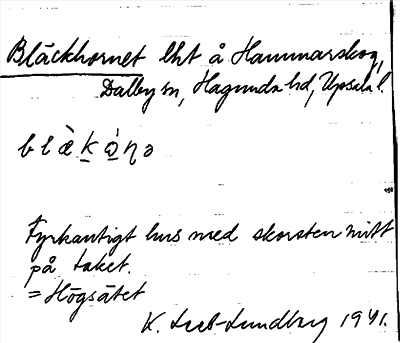 Bläckhornet lht å Hammarskog,
Dalby sn, Hagunda hd, Upsala l.
blæ̀kò̱ɳə
Fyrkantigt hus med skorsten mitt
på taket.
= Högsätet
K. 1941.